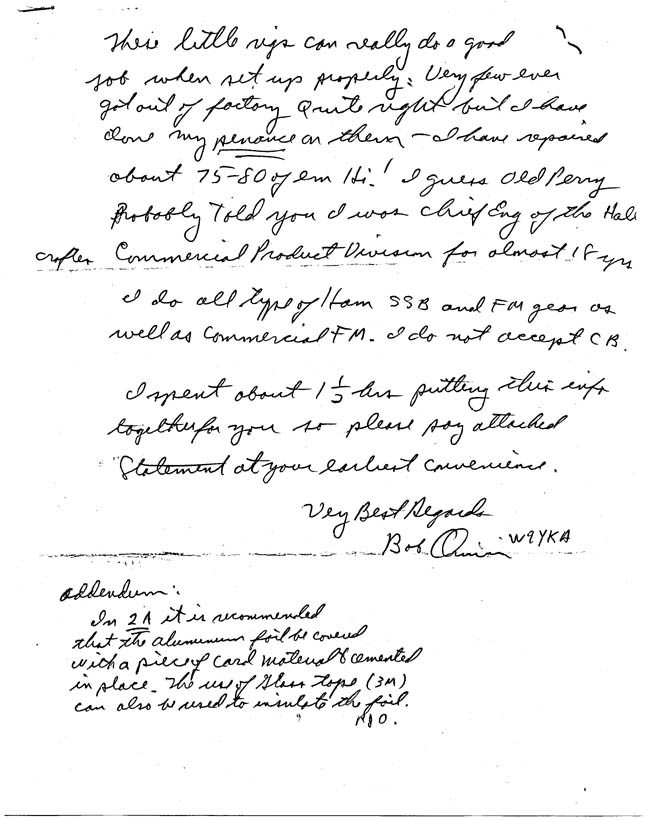 These little rigs can really do a good
job when set up properly. Very few ever
got out of factory quite right but I have
done my penance on them – I have repaired
about 75-80 of em Hi! I guess Old Perry
Probably Told you I was Chief Eng of the Halli
crafter Commercial Product Division for almost 18 yrs
I do all type of Ham SSB and FM gear as
well as Commercial FM. I do not accept CB.
I spent about 1 1/2 hrs putting this info
together for you so please pay attached
Statement at your earliest convenience.
Very Best Regards
Bob W9YKA
addendum:
In 2A it is recommended
that the aluminum foil be covered
with a piece of card material & cemented
in place. The use of Glass tape (3M)
can also be used to insulate the foil.